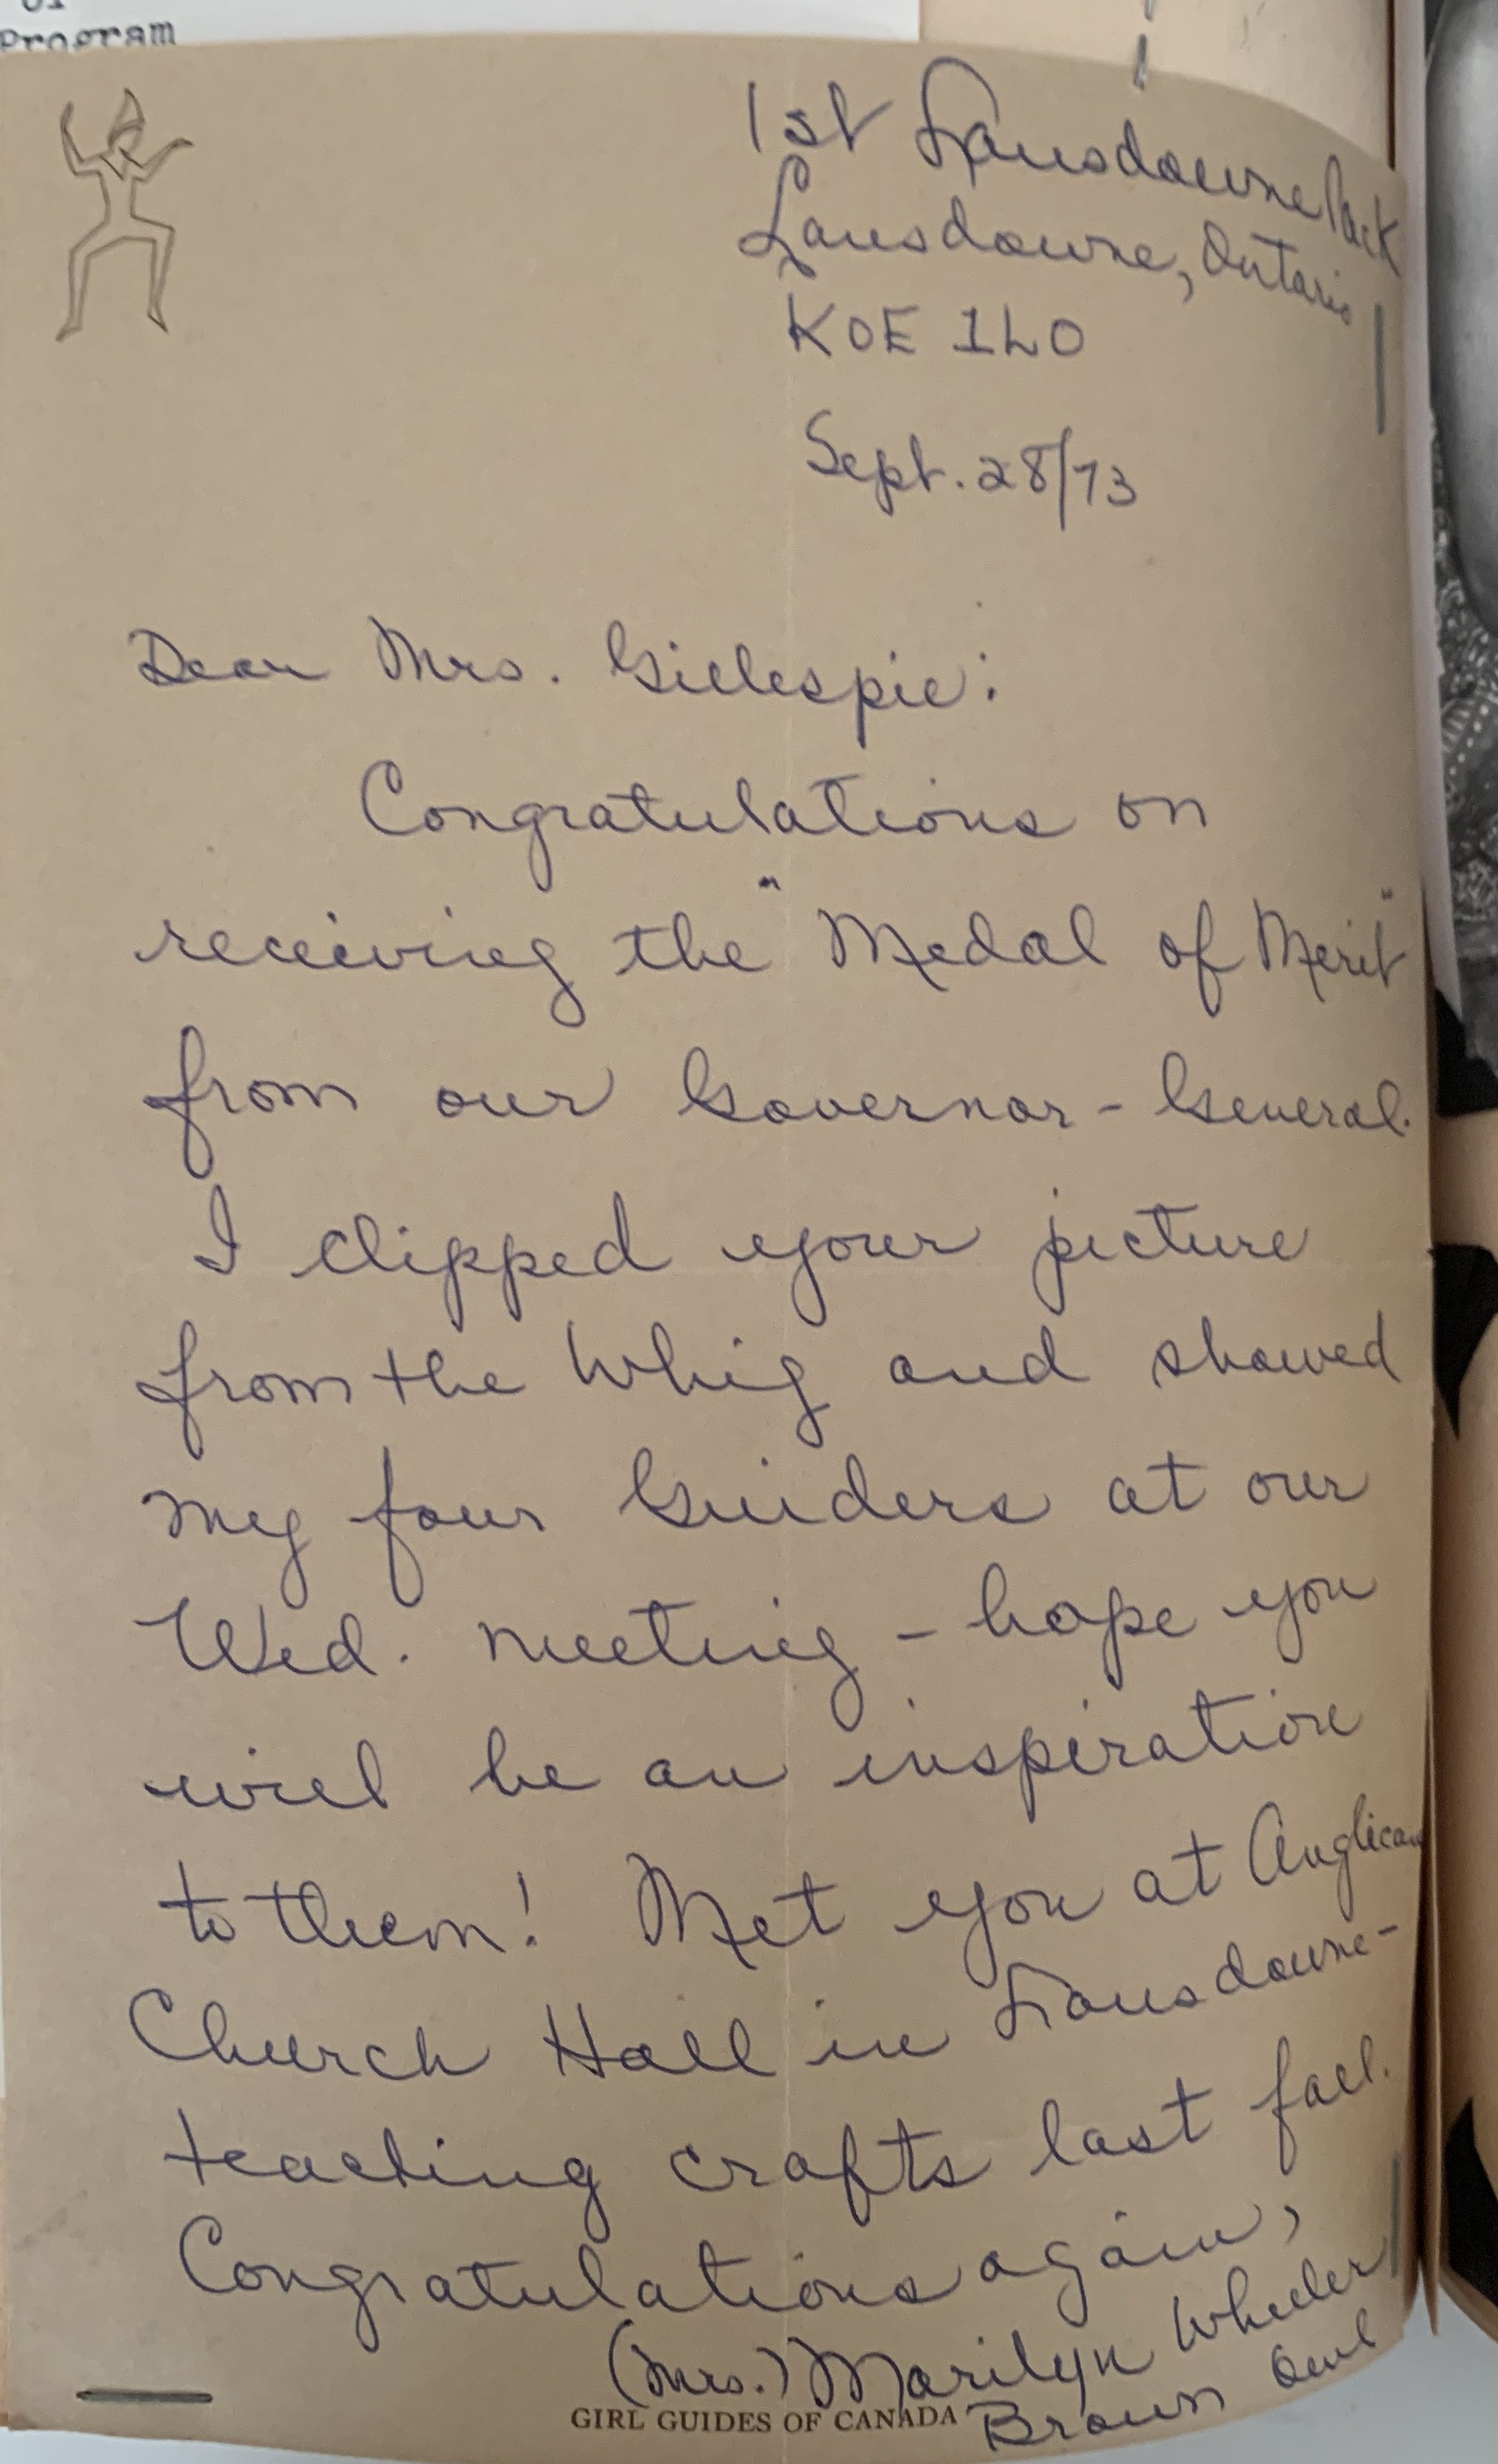 Program
1st Lansdowne Pack
Lansdowne, Ontario
K0E 1L0
Sept. 28/73
Dear Mrs. Gillespie:
Congratulations on
receiving the "Medal of Merit"
from our Governor-General.
I clipped your picture
from the Whig and showed
my four Guiders at our
Wed. meeting - hope you
will be an inspiration
to them! Met you at Anglican
Church Hall in Lansdowne -
teaching crafts last fall.
Congratulations again,
(Mrs.) Marilyn Wheeler
Brown Owl
GIRL GUIDES OF CANADA